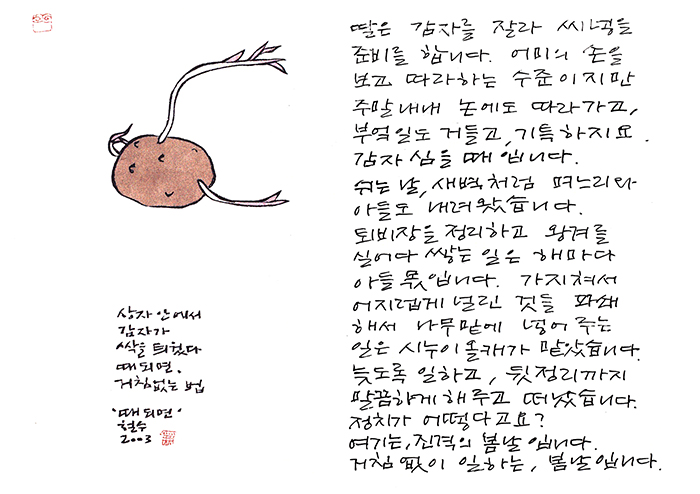 상자 안에서
감자가
싹을 틔웠다
때 되면,
거침없는 법
'때 되면'
철수
2003
딸은 감자를 잘라 씨넣을
준비를 합니다. 어미의 손을
보고 따라하는 수준이지만
주말내내 논에도 따라가고,
부엌일도 거들고, 기특하지요.
감자 심을 때입니다.
쉬는 날, 새벽처럼 며느리와
아들도 내려왔습니다.
퇴비장을 정리하고 왕겨를
실어다 쌓는 일은 해마다
아들 몫입니다. 가지쳐서
어지럽게 널린 것들 파쇄
해서 나무밑에 넣어 주는
일은 시누이올캐가 맡았습니다.
늦도록 일하고, 뒷정리까지
말끔하게 해주고 떠났습니다.
정치가 어떻다고요?
여기는, 진격의 봄날입니다.
거침없이 일하는, 봄날입니다.